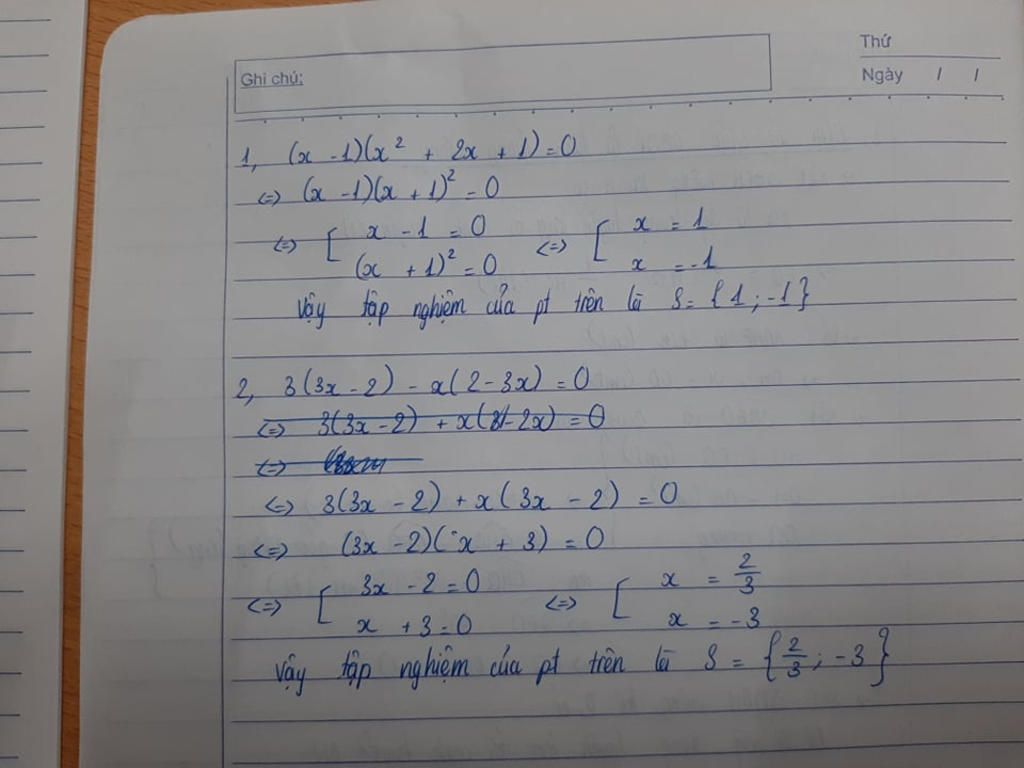 Thứ
Ghi chú:
Ngày / /
1, (x - 1)(x² + 2x + 1) = 0
<=> (x - 1)(x + 1)² = 0
<=> [ x - 1 = 0 <=> [ x = 1
(x + 1)² = 0 x = -1
Vậy tập nghiệm của pt trên là S = {1 ; -1}
2, 3(3x - 2) - x(2 - 3x) = 0
<=> 3(3x - 2) + x(3 - 2x) = 0
<=>
<=> 3(3x - 2) + x(3x - 2) = 0
<=> (3x - 2)(x + 3) = 0
<=> [ 3x - 2 = 0 <=> [ x = 2/3
x + 3 = 0 x = -3
Vậy tập nghiệm của pt trên là S = {2/3 ; -3}